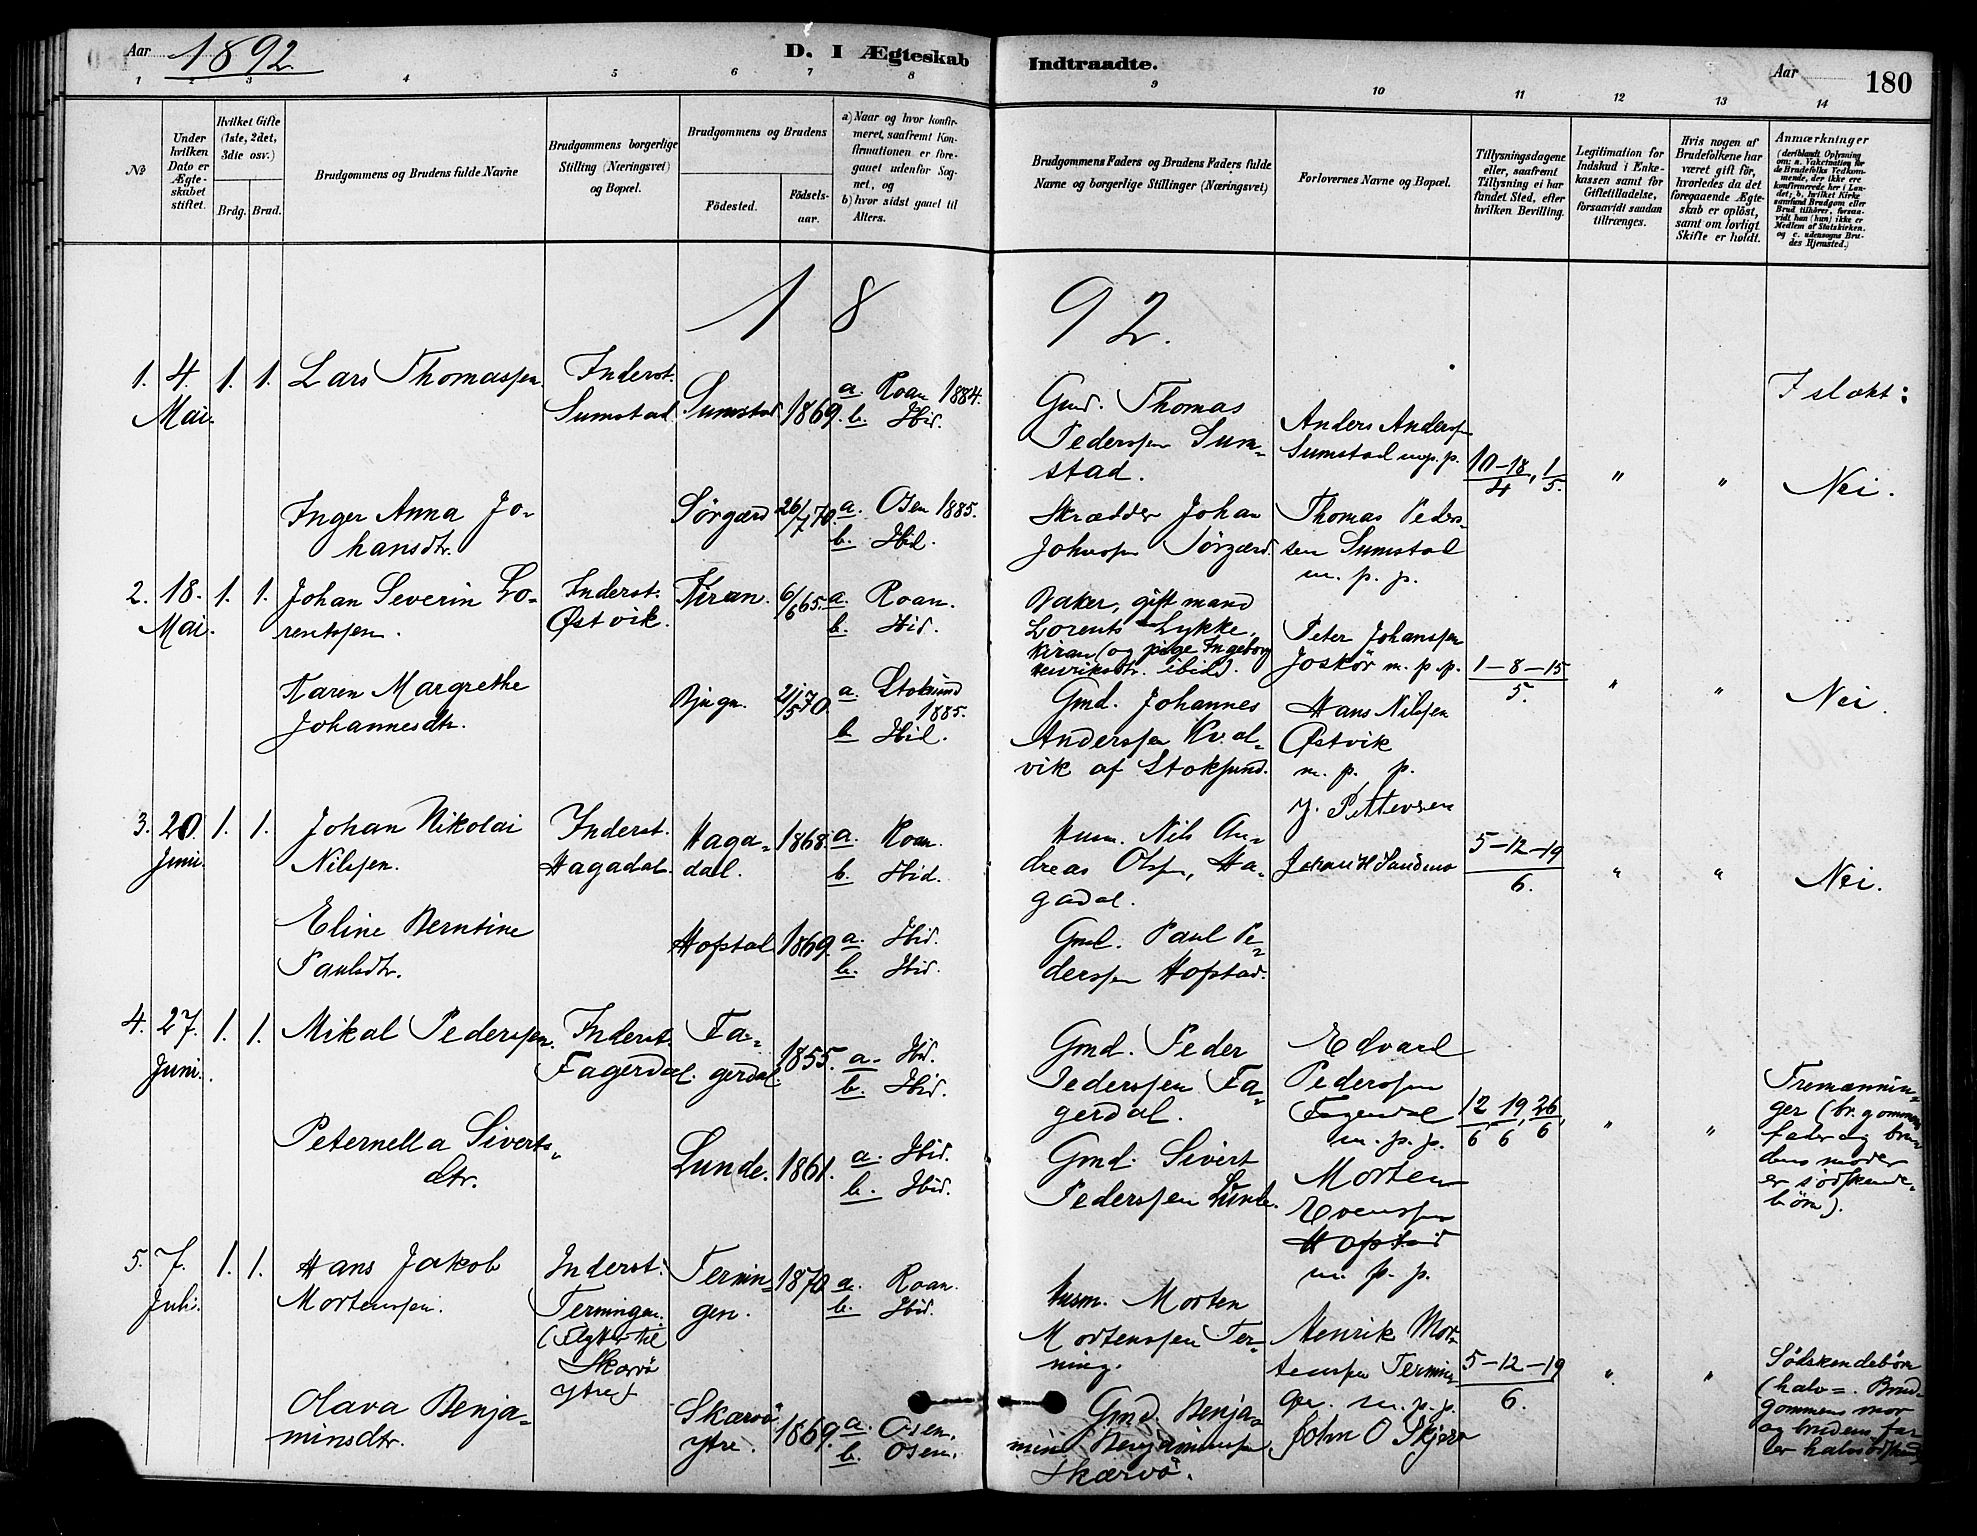 Aar 1892.
D. I Ægteskab Indtraadte.
Aar 180
1 2 3 4 5 6 7 8 9 10 11 12 13 14
No
Under hvilken Dato er Ægteskabet stiftet.
Hvilket Gifte (1ste, 2det, 3die osv.)
Brdg. Brud.
Brudgommens og Brudens fulde Navne
Brudgommens borgerlige Stilling (Næringsvei) og Bopæl.
Brudgommens og Brudens
Fødested.
Fødselsaar.
a) Naar og hvor konfirmeret, saafremt Konfirmationen er foregaaet udenfor Sognet, og
b) hvor sidst gaaet til Alters.
Brudgommens Faders og Brudens Faders fulde Navne og borgerlige Stillinger (Næringsvei)
Forlovernes Navne og Bopæl.
Tillysningsdagene eller, saafremt Tillysning ei har fundet Sted, efter hvilken Bevilling.
Legitimation for Indskud i Enkekassen samt for Giftetilladelse, forsaavidt saadan tiltrænges.
Hvis nogen af Brudefolkene har været gift før, hvorledes da det foregaaende Ægteskab er opløst, samt om lovligt Skifte er holdt.
Anmærkninger
(deriblandt Oplysning om: a. Vakcination for de Brudefolks Vedkommende, der ikke ere konfirmerede her i Landet; b. hvilket Kirkesamfund Brudgom eller Brud tilhører, forsaavidt han (hun) ikke er Medlem af Statskirken, og c. udensogns Brudes Hjemsted.)
1892.
1. 4. Mai. 1. 1. Lars Thomassen. Inderst. Sumstad. Sumstad 1869. a. Roan 1884. b. Ibid.
Gmd. Thomas Pederssen Sumstad.
Anders Anderssen Sumstad m. p. p.
10-18/4, 1/5. " " I slækt: Nei.
Inger Anna Johansdtr. Sørgærd 26/7 70. a. Osen 1885. b. Ibid.
Skrædder Johan Johnssen Sørgærd.
Thomas Pederssen Sumstad m. p. p.
2. 18. Mai. 1. 1. Johan Severin Lorentssen. Inderst. Østvik. Kiran. 6/6 65. a. Roan. b. Ibid.
Baker, gift mand Lorents Lykke, Kiran (og pige Ingeborg Henriksdtr. ibid).
Peter Johanssen Joskør m. p. p.
1-8-15/5. " " Nei.
Karen Margrethe Johannesdtr. Bjugn. 21/5 70. a. Stoksund 1885. b. Ibid.
Gmd. Johannes Anderssen Kvalvik af Stoksund.
Hans Nilssen Østvik m. p. p.
3. 20. Juni. 1. 1. Johan Nikolai Nilssen. Inderst. Hagadal. Hagadal. 1868. a. Roan. b. Ibid.
Husm. Nils Andreas Olssen, Hagadal.
J. Pettersen
Johan H Sandmo
5-12-19/6. " " Nei.
Eline Berntine Paulsdtr. Hofstad 1869. a. Ibid. b. Ibid.
Gmd. Paul Pederssen Hofstad.
4. 27. Juni. 1. 1. Mikal Pederssen. Inderst. Fagerdal. Fagerdal. 1855. a. Ibid. b. Ibid.
Gmd. Peder Pederssen Fagerdal.
Edvard Pederssen Fagerdal m. p. p.
12/6, 19/6, 26/6, " "
Tremænninger (br.gommens fader og brudens moder er sødskendebörn).
Peternella Sivertsdtr. Lunde. 1861. a. Ibid. b. Ibid.
Gmd. Sivert Pederssen Lunde.
Morten Evenssen Hofstad m. p. p.
5. 7. Juli. 1. 1. Hans Jakob Mortenssen. Inderst. Terningen. (flytter til Skærvø ytre) Terningen. 1870. a. Roan. b. Ibid.
Husm. Morten Mortenssen Terning.
Henrik Mortenssen Terningen. m. p. p.
5-12-19/6. " "
Sødskendebörn (halv=. Brudgommens mor og brudens far er halvsødskend)
Olava Benjaminsdtr. Skærvø ytre. 1869. a. Osen. b. Osen.
Gmd. Benjamin Benjaminssen Skærvø.
John O Skjærvø